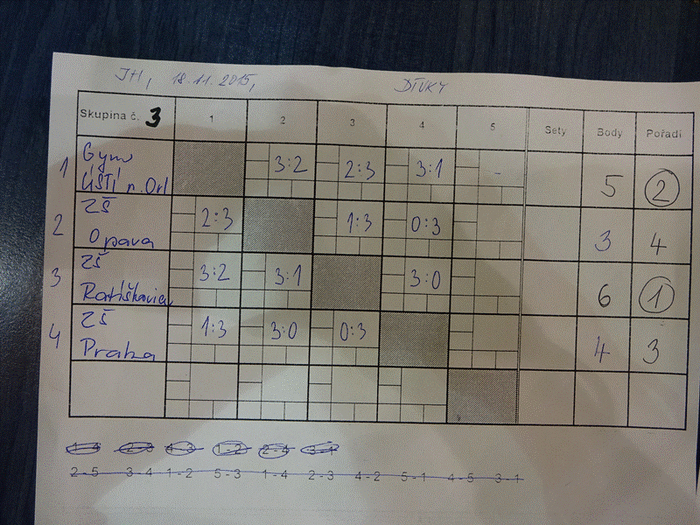 JH, 18.11.2015, DÍVKY
Skupina č. 3 1 2 3 4 5 Sety Body Pořadí
1 Gym ÚSTÍ n. Orl 3:2 2:3 3:1 - 5 2
2 ZŠ Opava 2:3 1:3 0:3 3 4
3 ZŠ 3:2 3:1 3:0 6 1
4 ZŠ Praha 1:3 3:0 0:3 4 3
1-2
2-5 3-4 1-2 5-3 1-4 2-3 4-2 5-1 4-5 3-1